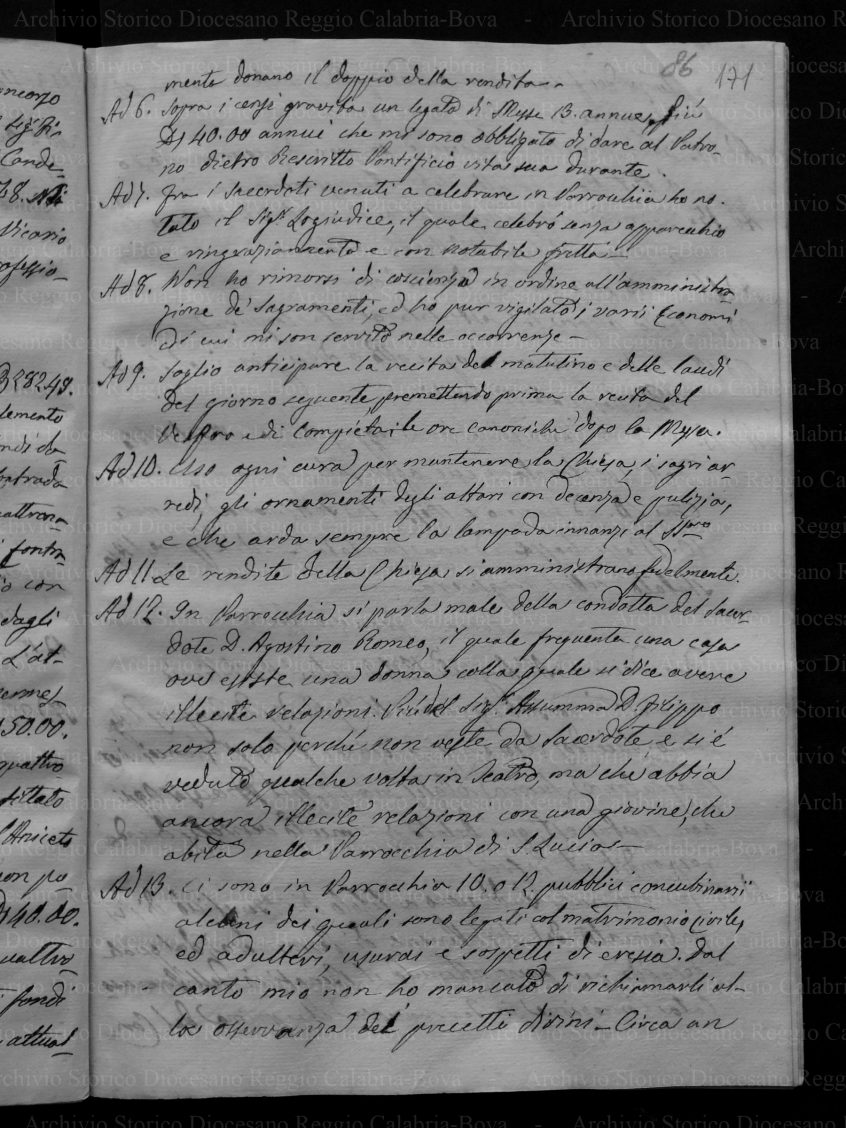 86 171
mente donano il doppio della rendita.
Ad 6. Sopra i censi gravita un legato di Messe 13. annue, più
D. 40.00 annui che mi sono obbligato di dare al Patro
no dietro Rescritto Pontificio vita sua durante.
Ad 7. Fra i Sacerdoti venuti a celebrare in Parrocchia ho no-
tato il Sig.r Logiudice, il quale celebrò senza apparecchio
e ringraziamento e con notabile fretta.
Ad 8. Non ho rimorsi di coscienza in ordine all'amministra-
zione de' Sagramenti, ed ho pur vigilato i varii Economi
di cui mi son servito nelle occorrenze -
Ad 9. Soglio anticipare la recita del matutino e delle laudi
del giorno seguente premettendo prima la recita del
Vespro e di Compieta; le ore canoniche dopo la Messa.
Ad 10. Uso ogni cura per mantenere la Chiesa, i sagri ar-
redi, gli ornamenti degli altari con decenza e pulizia,
e che arda sempre la lampada innanzi al SS.mo
Ad 11. Le rendite della Chiesa si amministrano fedelmente.
Ad 12. In Parrocchia si parla male della condotta del Sacer-
dote D. Agostino Romeo, il quale frequenta una casa
ove esiste una donna colla quale si dice avere
illecite relazioni. Più del Sig.r Assumma D. Filippo
non solo perché non veste da Sacerdote e si è
veduto qualche volta in Teatro, ma che abbia
ancora illecite relazioni con una giovine, che
abita nella Parrocchia di S. Lucia -
Ad 13. Ci sono in Parrocchia 10. o 12. pubblici concubinarii
alcuni dei quali sono legati col matrimonio civile,
ed adulteri, usurai e sospetti di eresia. Dal
canto mio non ho mancato di richiamarli al-
la osservanza dei precetti divini - Circa un